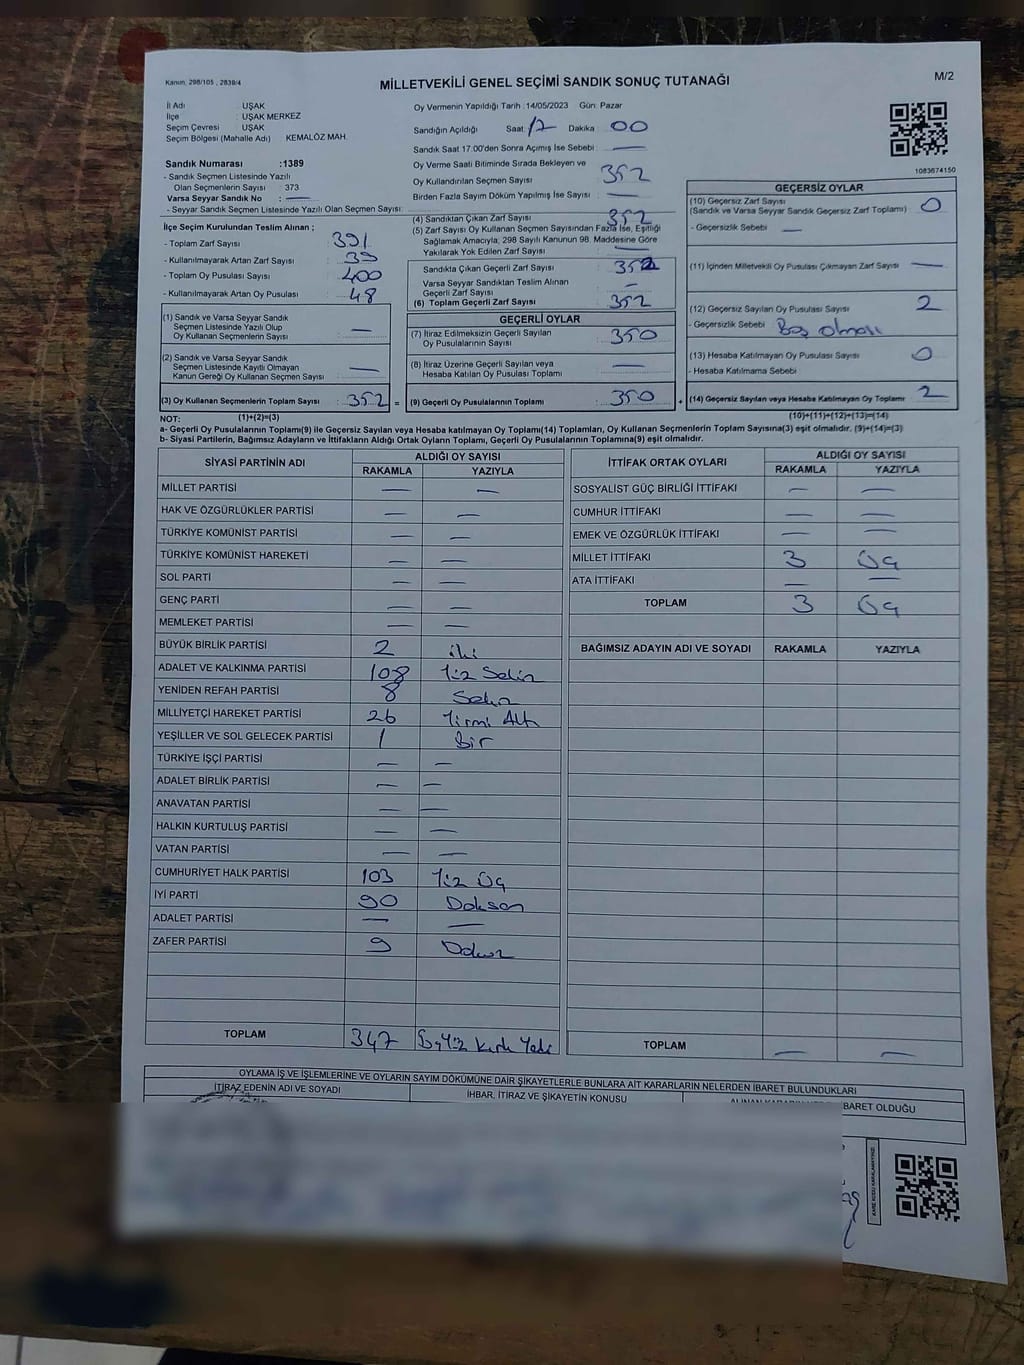 Kanun, 298/105 , 2839/4
MİLLETVEKİLİ GENEL SEÇİMİ SANDIK SONUÇ TUTANAĞI
M/2
İl Adı : UŞAK
İlçe : UŞAK MERKEZ
Seçim Çevresi : UŞAK
Seçim Bölgesi (Mahalle Adı) : KEMALÖZ MAH.
Sandık Numarası :1389
- Sandık Seçmen Listesinde Yazılı
Olan Seçmenlerin Sayısı : 373
Varsa Seyyar Sandık No : —
- Seyyar Sandık Seçmen Listesinde Yazılı Olan Seçmen Sayısı:
Oy Vermenin Yapıldığı Tarih :14/05/2023 Gün: Pazar
Sandığın Açıldığı Saat 17 Dakika 00
Sandık Saat 17:00'den Sonra Açımış İse Sebebi : —
Oy Verme Saati Bitiminde Sırada Bekleyen ve
Oy Kullandırılan Seçmen Sayısı : 352
Birden Fazla Sayım Döküm Yapılmış İse Sayısı : —
(4) Sandıktan Çıkan Zarf Sayısı : 352
(5) Zarf Sayısı Oy Kullanan Seçmen Sayısından Fazla İse, Eşitliği
Sağlamak Amacıyla; 298 Sayılı Kanunun 98. Maddesine Göre
Yakılarak Yok Edilen Zarf Sayısı : —
İlçe Seçim Kurulundan Teslim Alınan ;
- Toplam Zarf Sayısı : 391
- Kullanılmayarak Artan Zarf Sayısı : 39
- Toplam Oy Pusulası Sayısı : 400
- Kullanılmayarak Artan Oy Pusulası : 48
(1) Sandık ve Varsa Seyyar Sandık
Seçmen Listesinde Yazılı Olup
Oy Kullanan Seçmenlerin Sayısı : —
(2) Sandık ve Varsa Seyyar Sandık
Seçmen Listesinde Kayıtlı Olmayan
Kanun Gereği Oy Kullanan Seçmen Sayısı : —
(3) Oy Kullanan Seçmenlerin Toplam Sayısı : 352 =
(1)+(2)=(3)
Sandıkla Çıkan Geçerli Zarf Sayısı : 352
Varsa Seyyar Sandıktan Teslim Alınan
Geçerli Zarf Sayısı : —
(6) Toplam Geçerli Zarf Sayısı : 352
GEÇERLİ OYLAR
(7) İtiraz Edilmeksizin Geçerli Sayılan
Oy Pusulalarının Sayısı : 350
(8) İtiraz Üzerine Geçerli Sayılan veya
Hesaba Katılan Oy Pusulası Toplamı : —
(9) Geçerli Oy Pusulalarının Toplamı : 350 +
1083674150
GEÇERSİZ OYLAR
(10) Geçersiz Zarf Sayısı
(Sandık ve Varsa Seyyar Sandık Geçersiz Zarf Toplamı) : 0
- Geçersizlik Sebebi : —
(11) İçinden Milletvekili Oy Pusulası Çıkmayan Zarf Sayısı : —
(12) Geçersiz Sayılan Oy Pusulası Sayısı : 2
- Geçersizlik Sebebi : Boş olması
(13) Hesaba Katılmayan Oy Pusulası Sayısı : 0
- Hesaba Katılmama Sebebi :
(14) Geçersiz Sayılan veya Hesaba Katılmayan Oy Toplamı : 2
(10)+(11)+(12)+(13)=(14)
NOT:
a- Geçerli Oy Pusulalarının Toplamı(9) ile Geçersiz Sayılan veya Hesaba katılmayan Oy Toplamı(14) Toplamları, Oy Kullanan Seçmenlerin Toplam Sayısına(3) eşit olmalıdır. (9)+(14)=(3)
b- Siyasi Partilerin, Bağımsız Adayların ve İttifakların Aldığı Ortak Oyların Toplamı, Geçerli Oy Pusulalarının Toplamına(9) eşit olmalıdır.
SİYASİ PARTİNİN ADI ALDIĞI OY SAYISI
RAKAMLA YAZIYLA
MİLLET PARTİSİ — —
HAK VE ÖZGÜRLÜKLER PARTİSİ — —
TÜRKİYE KOMÜNİST PARTİSİ — —
TÜRKİYE KOMÜNİST HAREKETİ — —
SOL PARTİ — —
GENÇ PARTİ — —
MEMLEKET PARTİSİ — —
BÜYÜK BİRLİK PARTİSİ 2 iki
ADALET VE KALKINMA PARTİSİ 108 Yüz Sekiz
YENİDEN REFAH PARTİSİ 8 Sekiz
MİLLİYETÇİ HAREKET PARTİSİ 26 Yirmi Altı
YEŞİLLER VE SOL GELECEK PARTİSİ 1 Bir
TÜRKİYE İŞÇİ PARTİSİ — —
ADALET BİRLİK PARTİSİ — —
ANAVATAN PARTİSİ — —
HALKIN KURTULUŞ PARTİSİ — —
VATAN PARTİSİ — —
CUMHURİYET HALK PARTİSİ 103 Yüz Üç
İYİ PARTİ 90 Doksan
ADALET PARTİSİ — —
ZAFER PARTİSİ 9 Dokuz
TOPLAM 347 Üçyüz Kırk Yedi
İTTİFAK ORTAK OYLARI ALDIĞI OY SAYISI
RAKAMLA YAZIYLA
SOSYALİST GÜÇ BİRLİĞİ İTTİFAKI — —
CUMHUR İTTİFAKI — —
EMEK VE ÖZGÜRLÜK İTTİFAKI — —
MİLLET İTTİFAKI 3 Üç
ATA İTTİFAKI — —
TOPLAM 3 Üç
BAĞIMSIZ ADAYIN ADI VE SOYADI RAKAMLA YAZIYLA
TOPLAM — —
OYLAMA İŞ VE İŞLEMLERİNE VE OYLARIN SAYIM DÖKÜMÜNE DAİR ŞİKAYETLERLE BUNLARA AİT KARARLARIN NELERDEN İBARET BULUNDUKLARI
İTİRAZ EDENİN ADI VE SOYADI
İHBAR, İTİRAZ VE ŞİKAYETİN KONUSU
BARET OLDUĞU
KARE KODU KARALAMAYINIZ!